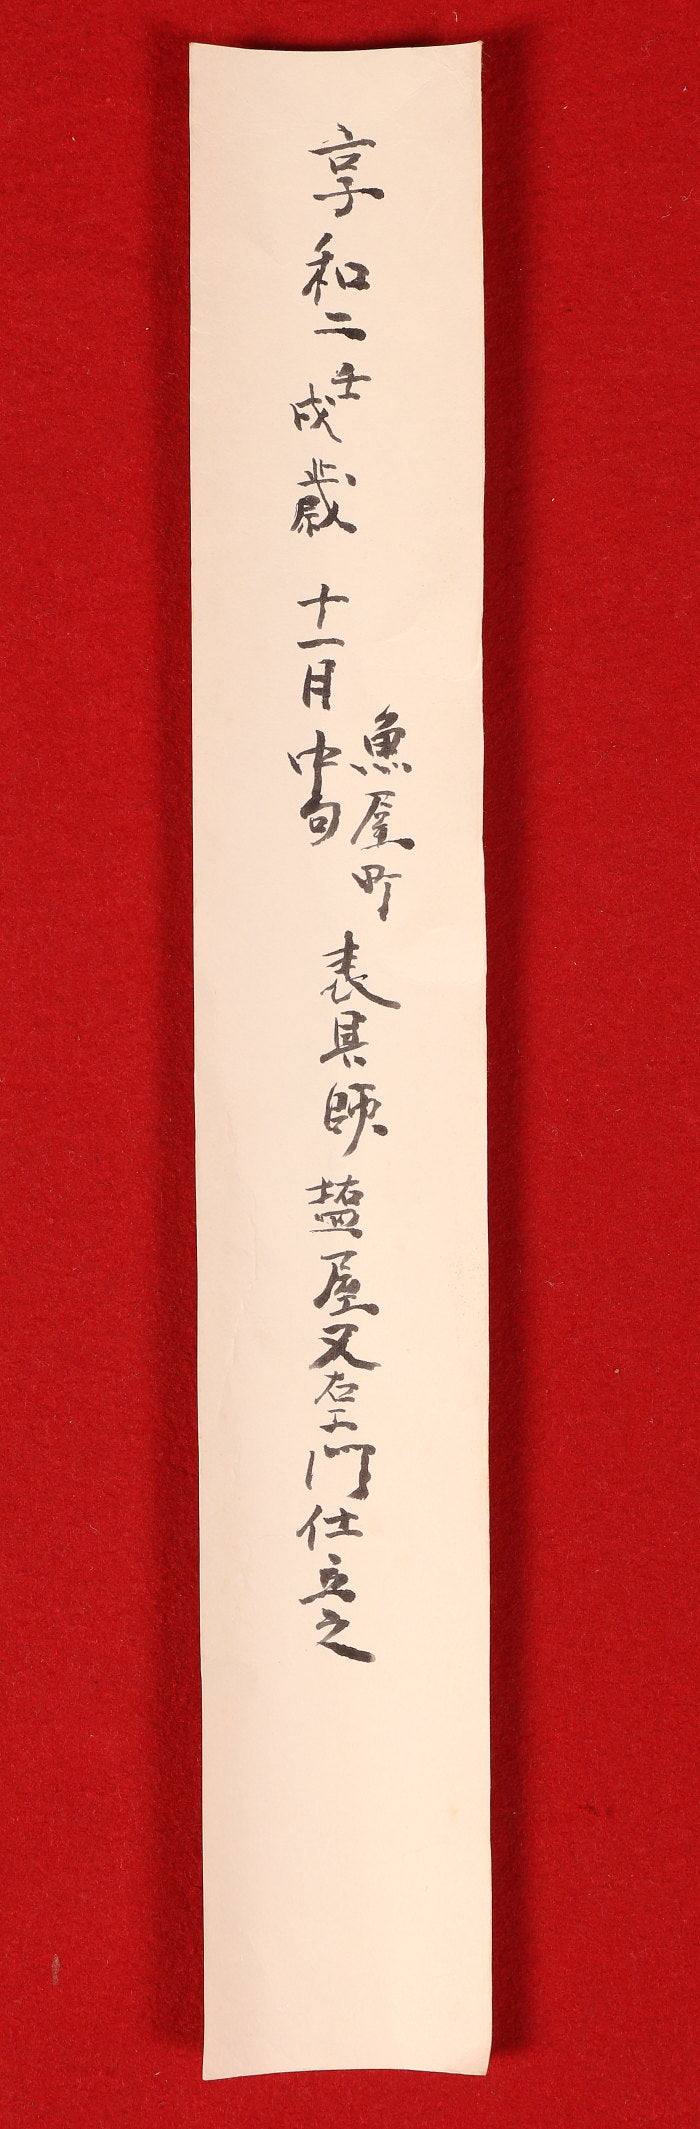 享和二壬戌歳 十一月中旬
魚屋町
表具師 塩屋又右エ門仕立之